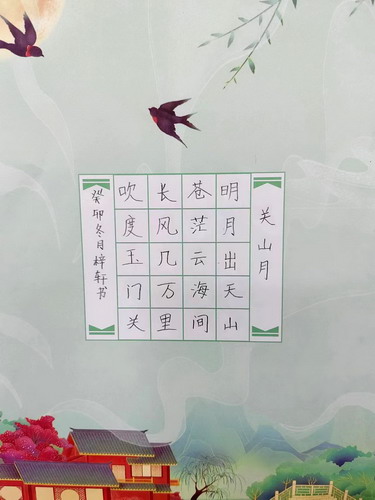 关山月
明月出天山
苍茫云海间
长风几万里
吹度玉门关
癸卯冬月梓轩书